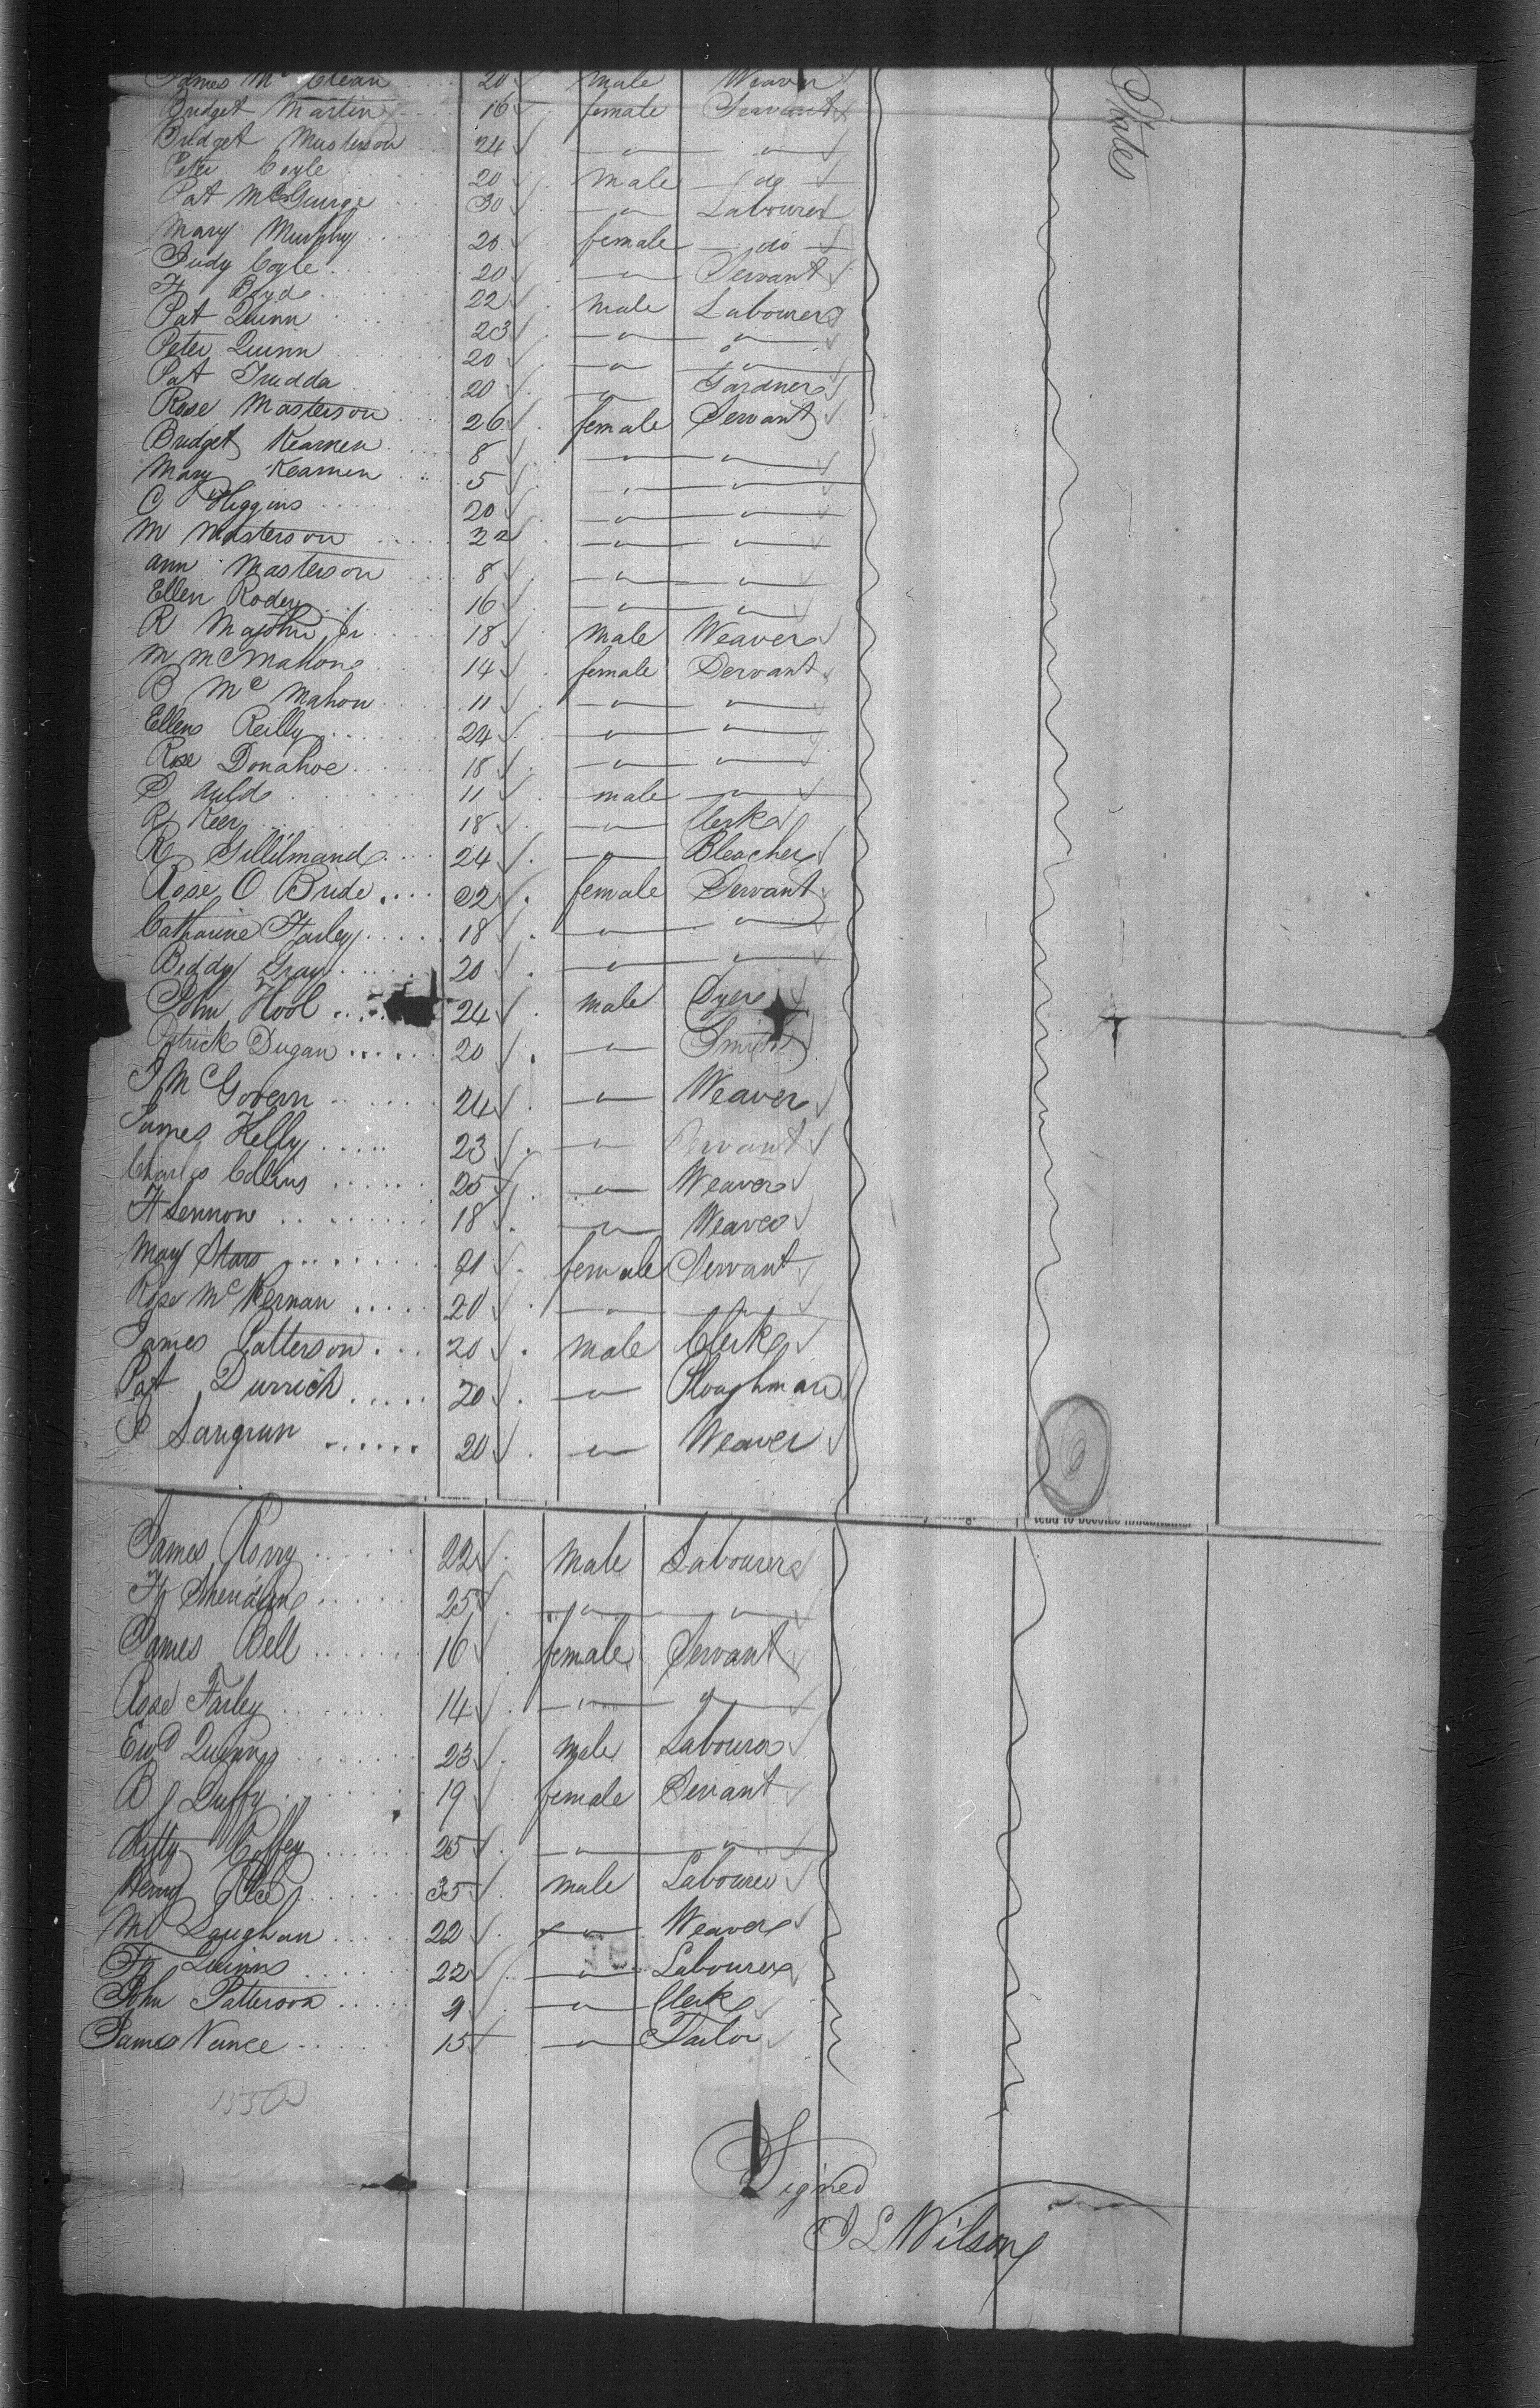 James Mc Clean 20 male Weaver
Bridget Martin 16 female Servant
Bridget Musterson 24 " "
Peter Coyle 20 male do
Pat McGuirge 30 " Labourer
Mary Murphy 20 female do
Judy Coyle 20 " Servant
Fr Boyd 22 male Labourer
Pat Quinn 23 " "
Peter Quinn 20 " "
Pat Trudda 20 " Gardner
Rose Masterson 26 female Servant
Bridget Kearnen 8 " "
Mary Kearnen 5 " "
C Higgins 20 " "
M Masterson 22 " "
Ann Masterson 8 " "
Ellen Rodey 16 " "
R Jr 18 male Weaver
M McMahon 14 female Servant
B Mc Mahon 11 " "
Ellen Reilly 24 " "
Rose Donahoe 18 " "
P Auld 11 male "
R Keer 18 " Clerk
R Gillilmand 24 " Bleacher
Rose O Bride 22 female Servant
Catharine Farley 18 " "
Biddy Gray 20 " "
John Hool 24 male Dyer
Patrick Dugan 20 " Smith
J McGovern 24 " Weaver
James Kelly 23 " Servant
Charles Collins 25 " Weaver
F Lennon 18 " Weaver
Mary 21 female Servant
Rose McKernan 20 " "
James Patterson 20 male Clerk
Pat Durrich 20 " Ploughman
P Sangrun 20 " Weaver
States
tend to become inhabitants
James Rorry 22 male Labourer
Fr Sheridan 25 " "
James Bell 16 female Servant
Rose Farley 14 " "
Ewd Quinn 23 male Labourer
B Duffy 19 female Servant
Kitty Coffey 25 " "
Henry 35 male Labourer
Mc Laughan 22 " Weaver
Fr Quinn 22 " Labourer
John Patterson 9 " Clerk
James Nence 15 " Tailor
1550
Signed
J L Wilson